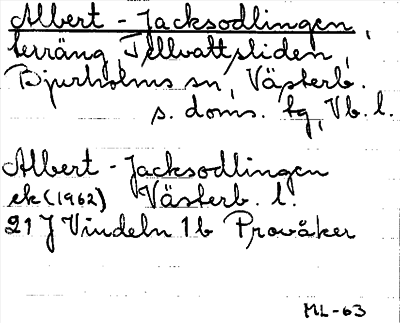 Albert-Jacksodlingen,
terräng, Tellvattsliden,
Bjurholms sn, Västerb.
s. doms. tg, Vb. l.
Albert-Jacksodlingen
ek (1962) Västerb. l.
21 J Vindeln 1b Provåker
ML-63